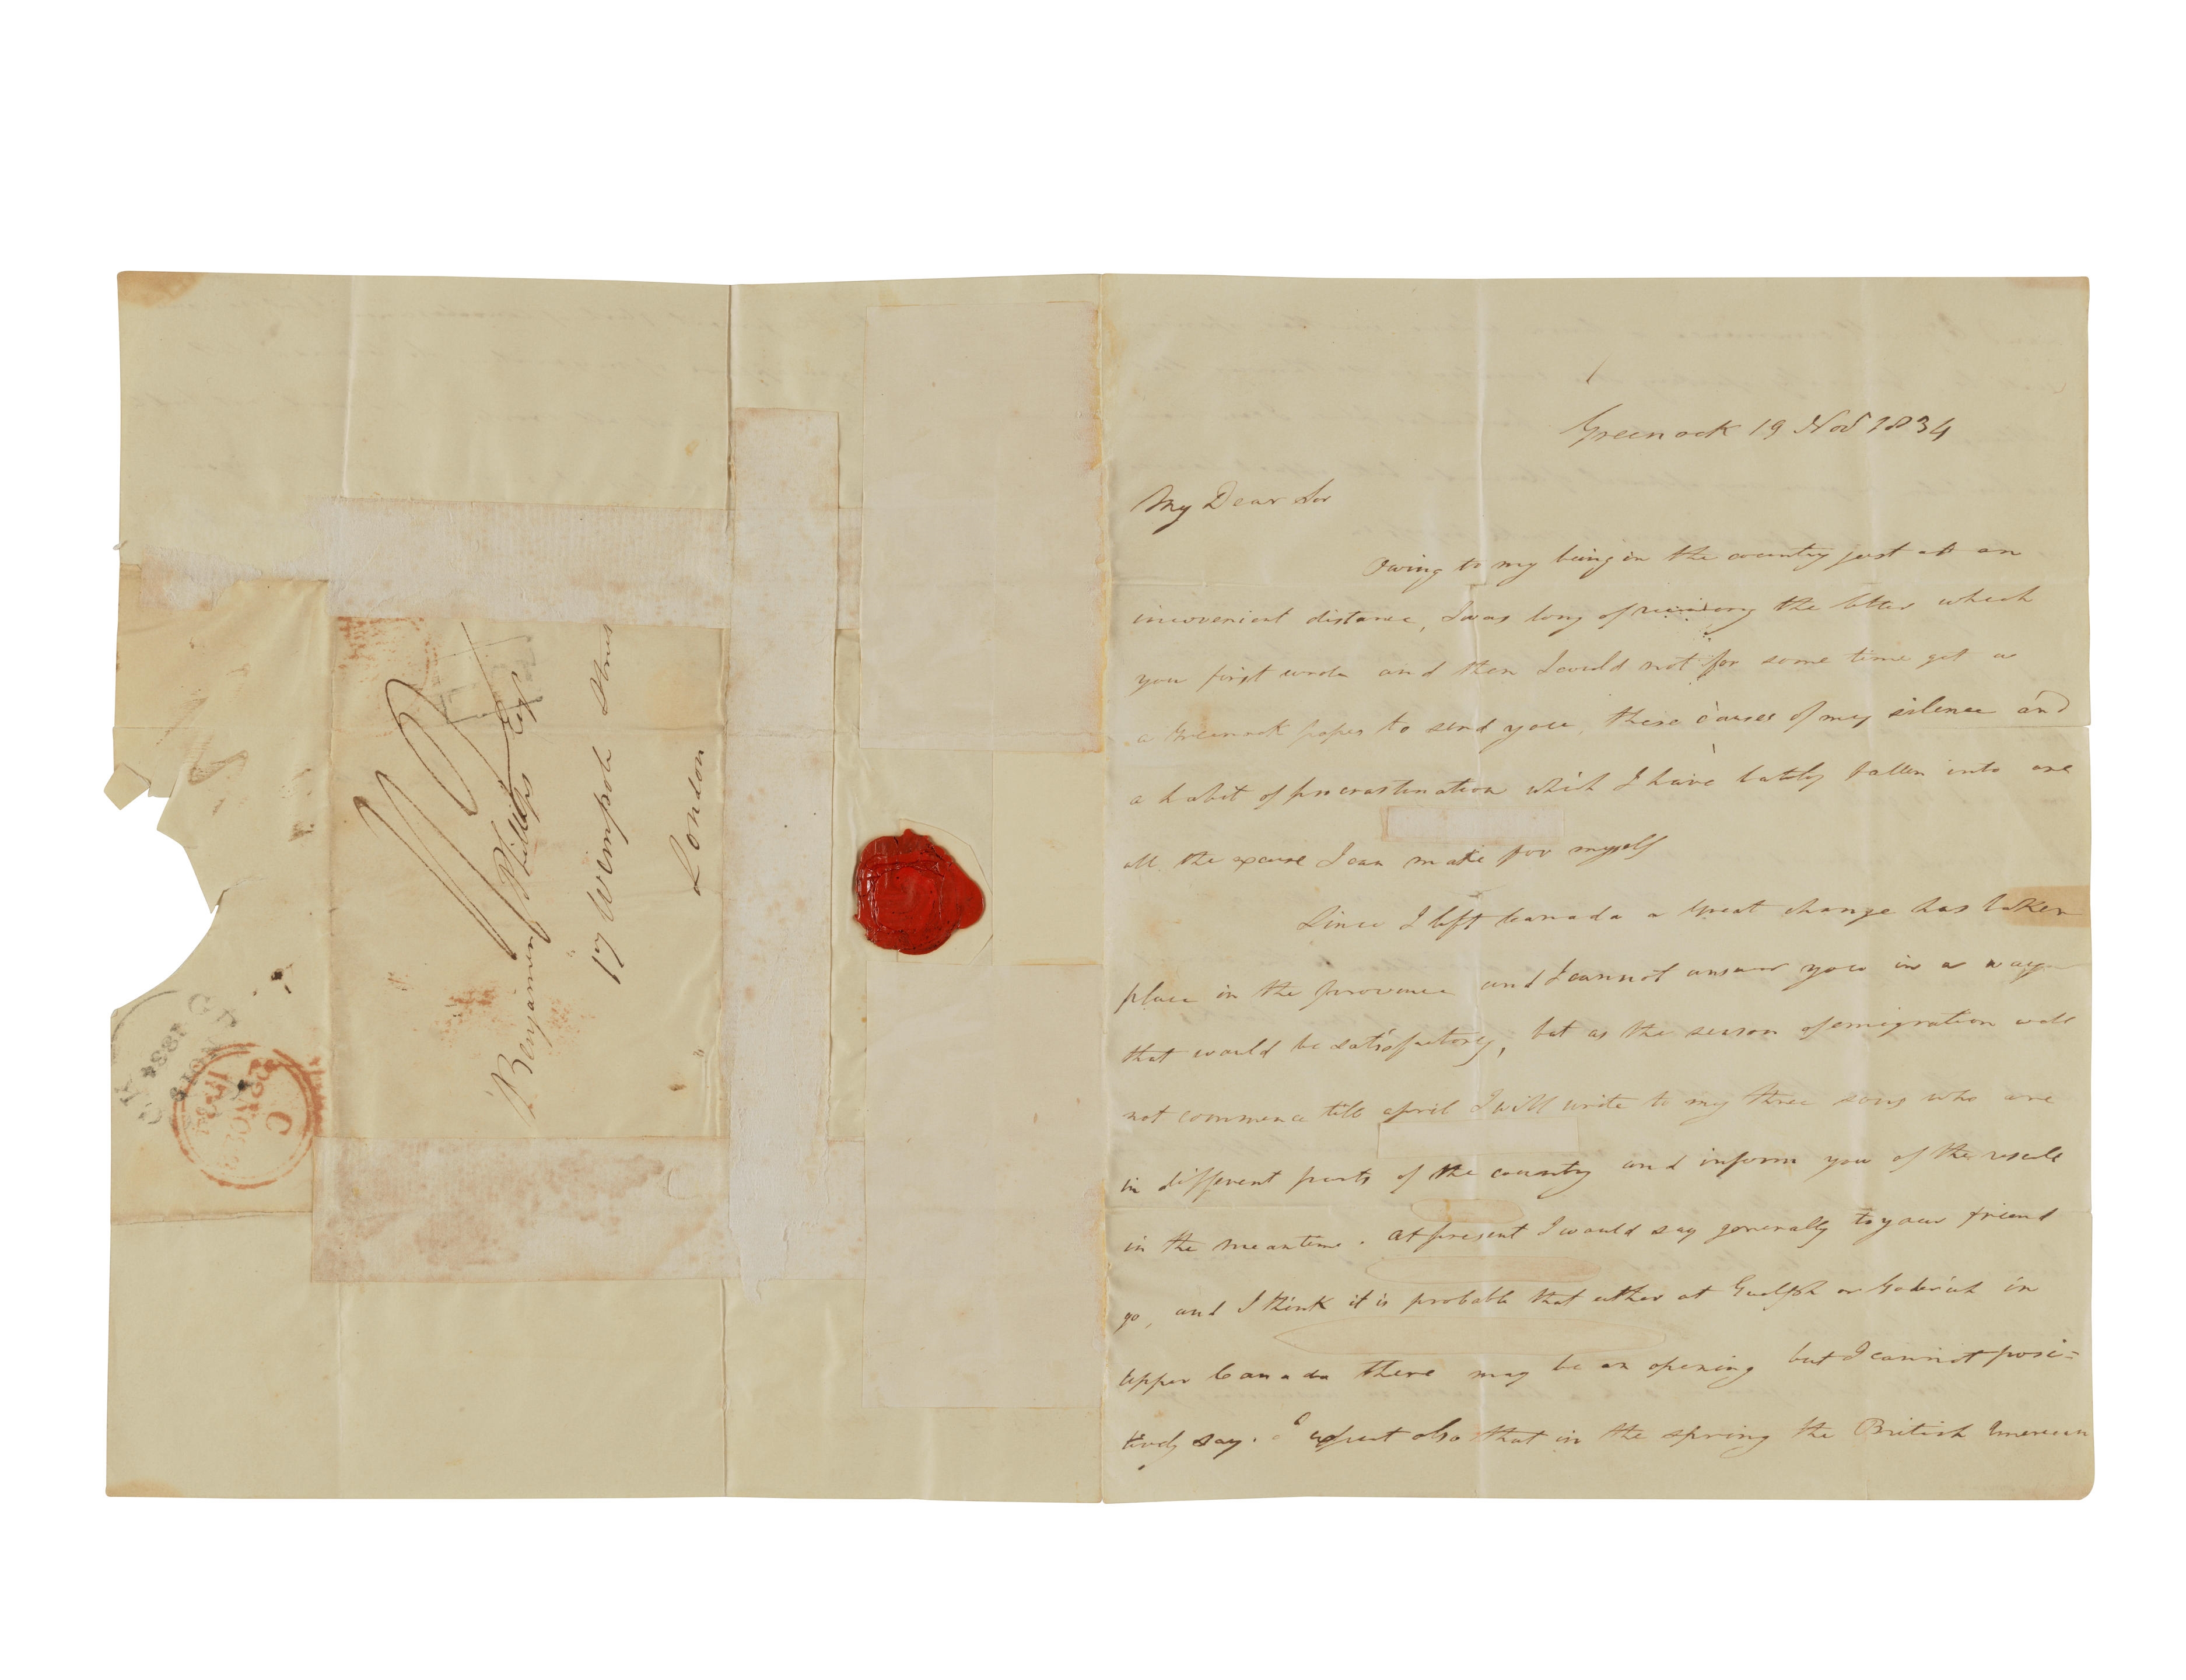 Benjamin Phillips Esq
17 Wimpole Street
London
C
22 NO
1834
1834
Greenock 19 Nov 1834
My Dear Sir
Owing to my being in the country just at an
inconvenient distance, I was long of receiving the letter which
you first wrote and then I could not for some time get a
a Greenock paper to send you, these causes of my silence and
a habit of procrastination which I have lately fallen into are
all the excuse I can make for myself
Since I left Canada a great change has taken
place in the province and I cannot answer you in a way
that would be satisfactory, but as the season of emigration will
not commence till april I will write to my three sons who are
in different parts of the country and inform you of the result
in the meantime. at present I would say generally to your friend
go, and I think it is probable that either at Guelph or Goderich in
upper Canada there may be an opening but I cannot posi=
tively say. I expect also that in the spring the British American